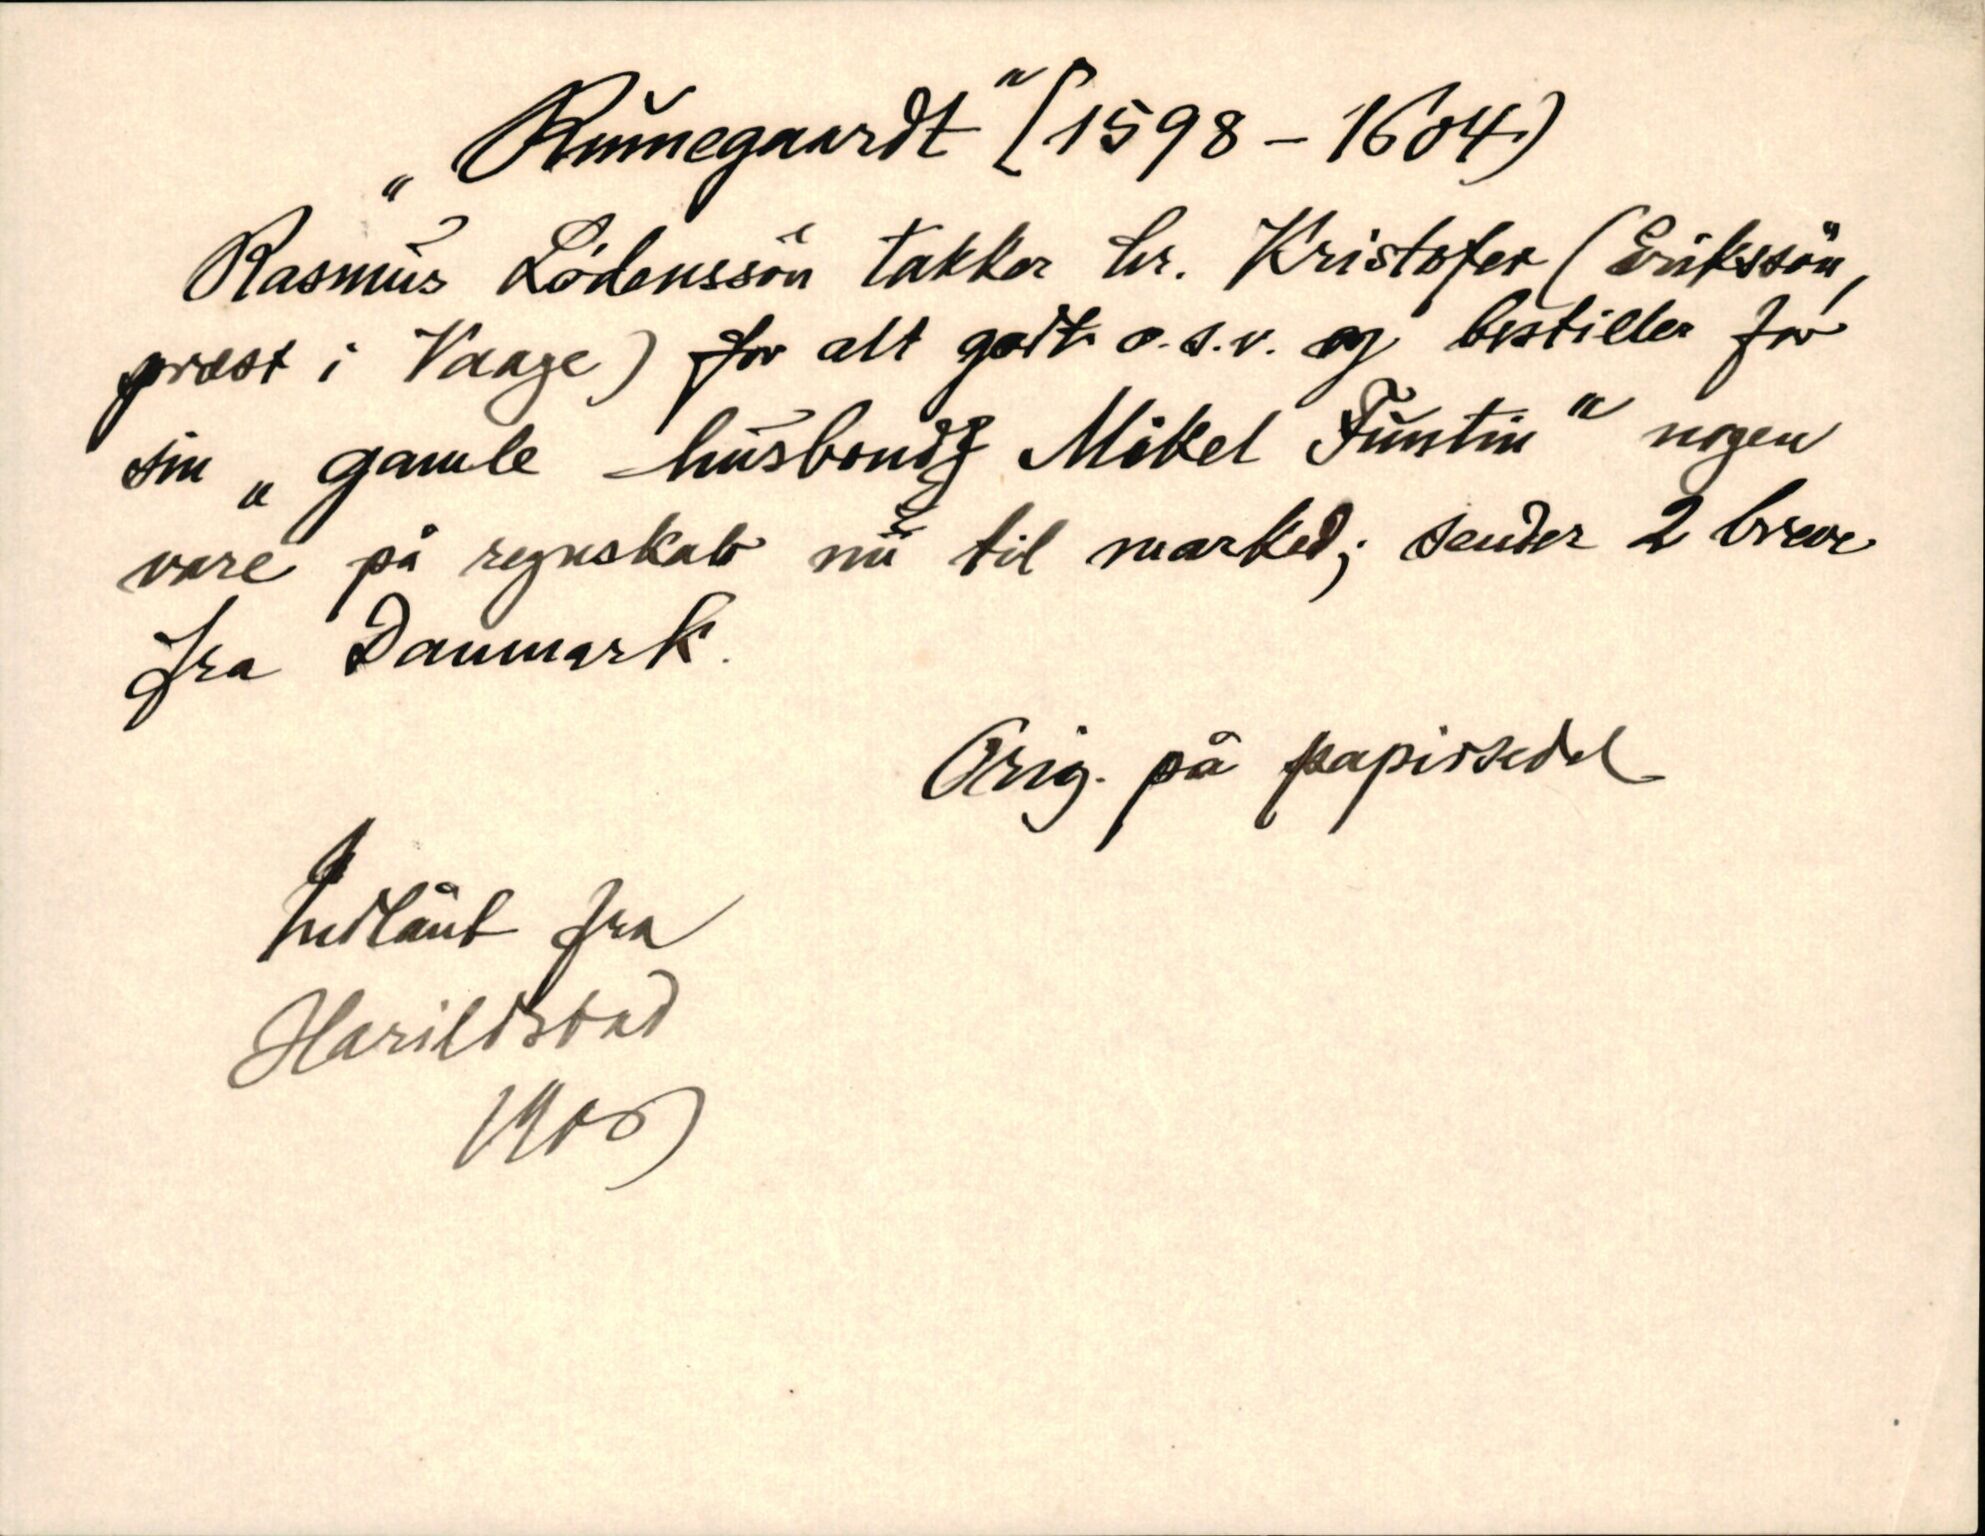 „Rumegaardt“ [1598 – 1604)
Rasmus Lodenssön takker hr. Kristofer (Erikssön,
præst i Vaage) for alt godt o.s.v. og bestiller for
sin „gamle husbond Mikel Funtin“ nogen
vare på regnskab nu til marked; sender 2 breve
fra Danmark.
Orig. på papirsedel
Indlånt fra
Harildstad